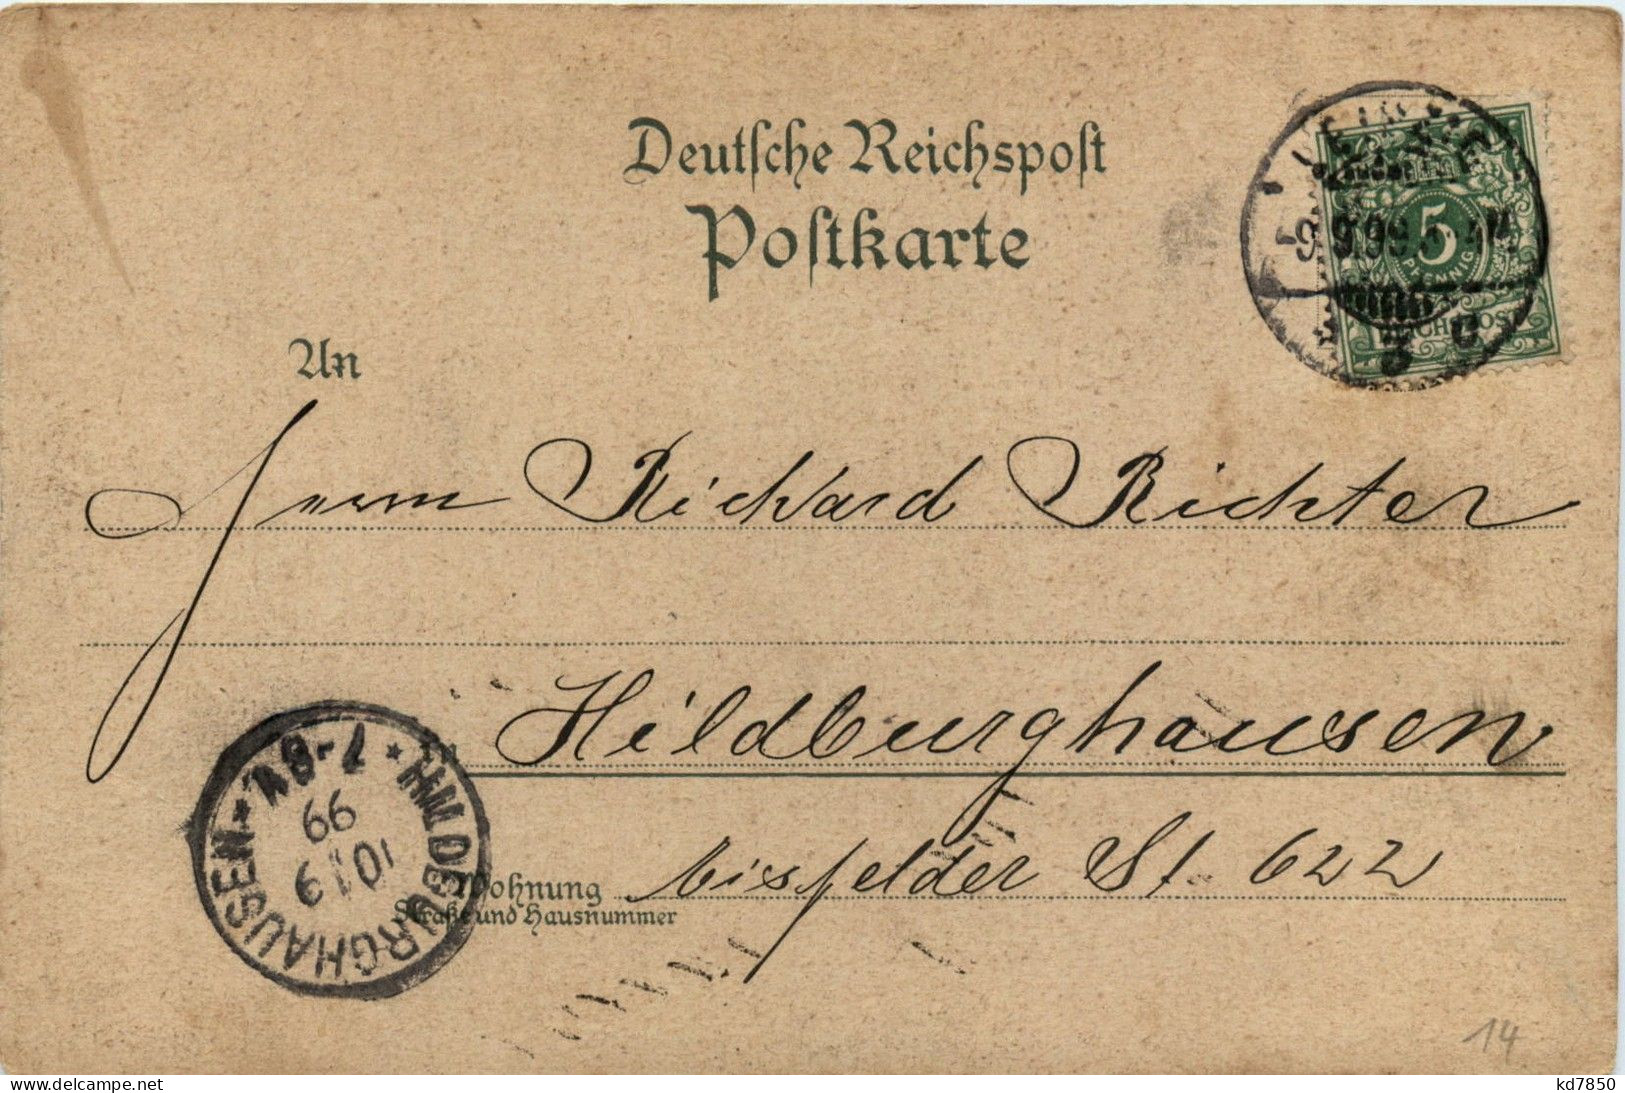 Deutsche Reichspost
Postkarte
9.9.99.
5
PFENNIG
REICHSPOST
3 c
An
Herrn Richard Richter
Hildburghausen
Eisfelder St 622
Wohnung
Straße und Hausnummer
HILDBURGHAUSEN
10 9
99
7-8V.
14
delcampe.net
kd7850